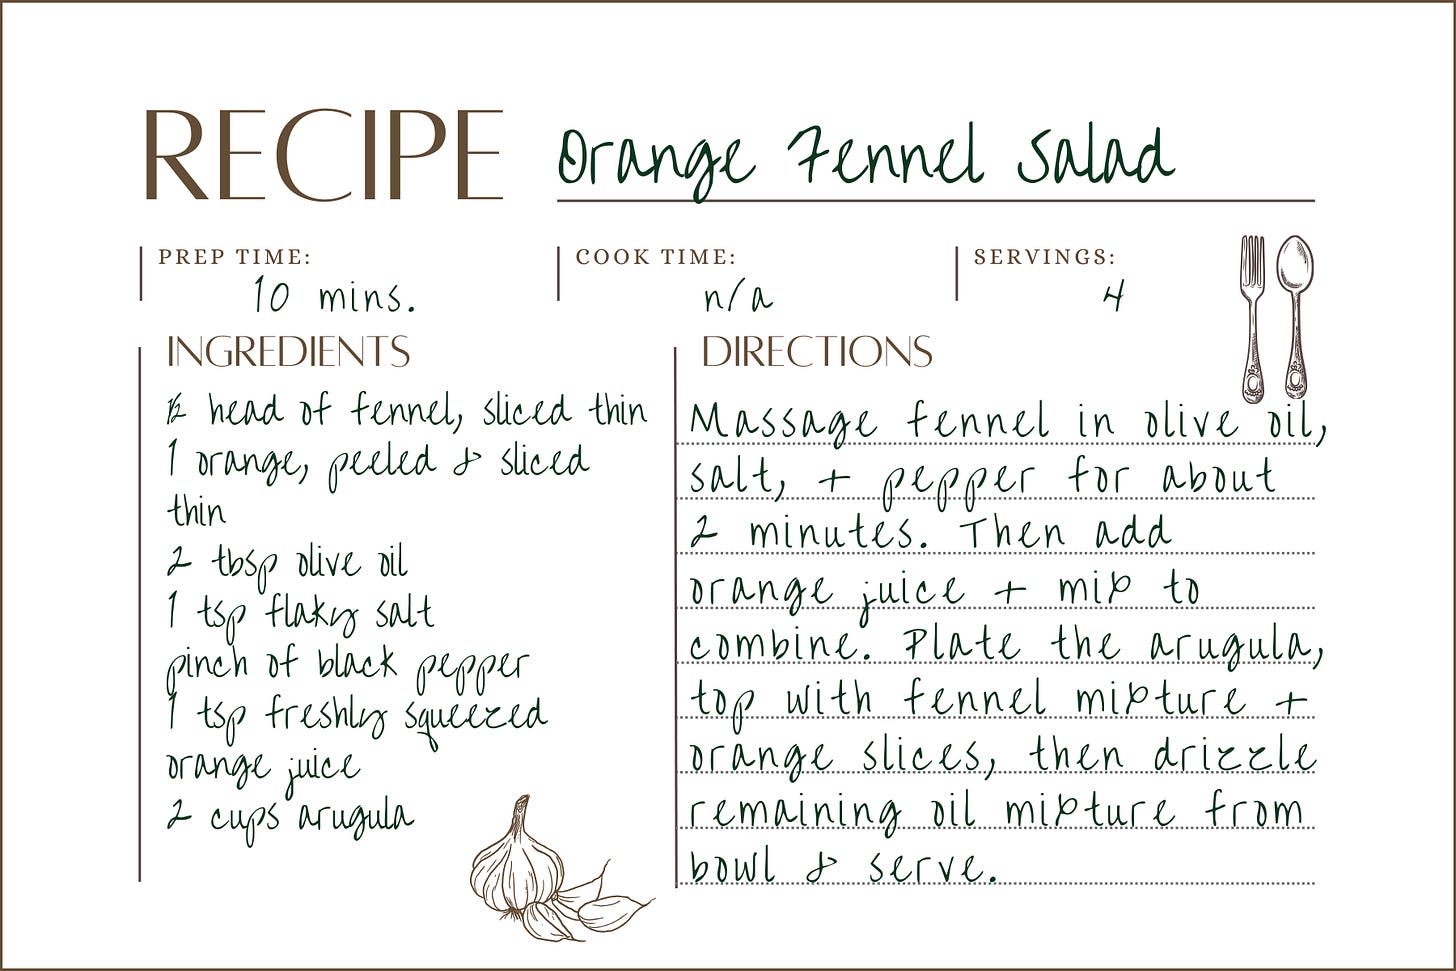 RECIPE Orange Fennel Salad
PREP TIME: COOK TIME: SERVINGS:
10 mins. n/a 4
INGREDIENTS
½ head of fennel, sliced thin
1 orange, peeled & sliced
thin
2 tbsp olive oil
1 tsp flaky salt
pinch of black pepper
1 tsp freshly squeezed
orange juice
2 cups arugula
DIRECTIONS
Massage fennel in olive oil,
salt, + pepper for about
2 minutes. Then add
orange juice + mix to
combine. Plate the arugula,
top with fennel mixture +
orange slices, then drizzle
remaining oil mixture from
bowl & serve.